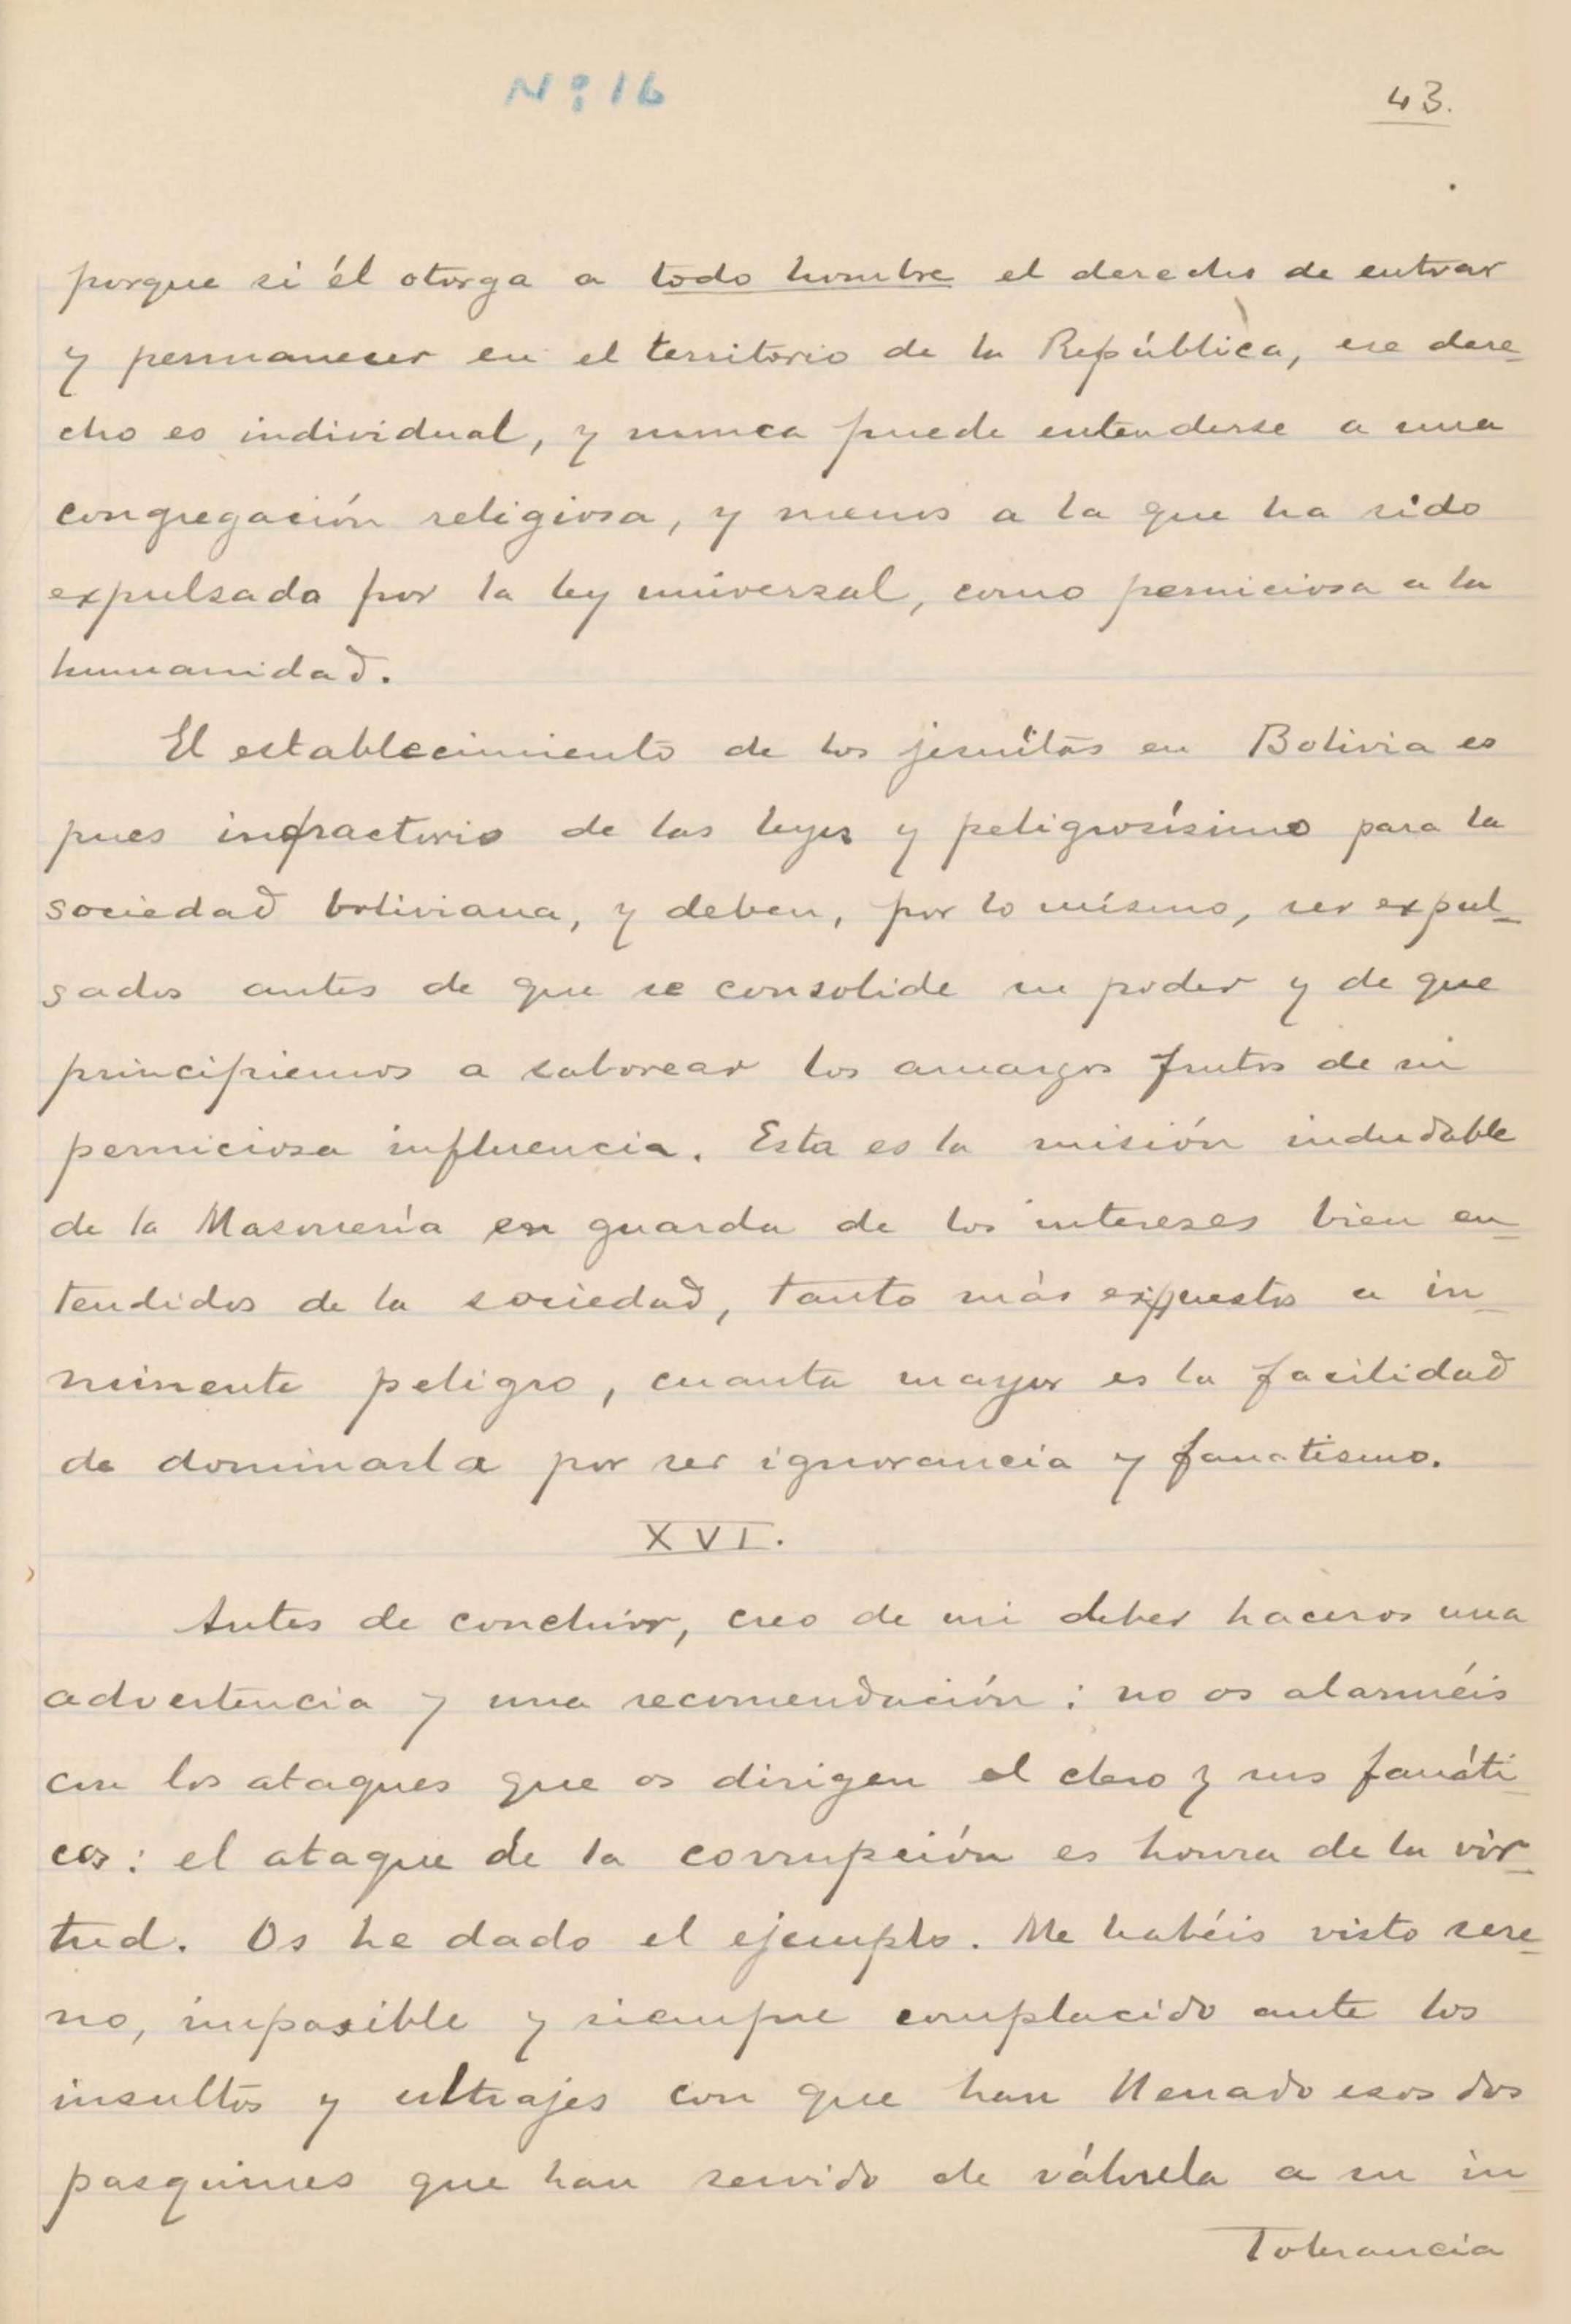 Nº 16
43.
porque si él otorga a todo hombre el derecho de entrar
y permanecer en el territorio de la República, ese dere-
cho es individual, y nunca puede entenderse a una
congregación religiosa, y menos a la que ha sido
expulsada por la ley universal, como perniciosa a la
humanidad.
El establecimiento de los jesuitas en Bolivia es
pues infractorio de las leyes y peligrosísimo para la
sociedad boliviana, y deben, por lo mísmo, ser expul-
sados antes de que se consolide su poder y de que
principiemos a saborear los amargos frutos de su
perniciosa influencia. Esta es la misión indudable
de la Masonería en guarda de los intereses bien en-
tendidos de la sociedad, tanto más expuestos a in-
minente peligro, cuanta mayor es la facilidad
de dominarla por ser ignorancia y fanatismo.
XVI.
Antes de concluir, creo de mi deber haceros una
advertencia y una recomendación: no os alarméis
con los ataques que os dirigen el clero y sus fanáti-
cos: el ataque de la corrupción es honra de la vir-
tud. Os he dado el ejemplo. Me habéis visto sere-
no, impasible y siempre complacido ante los
insultos y ultrajes con que han llenado esos dos
pasquines que han servido de válvula a su in-
tolerancia